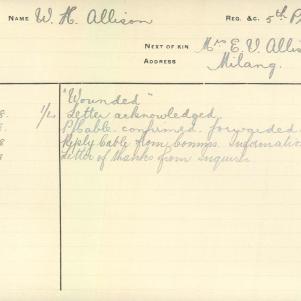 NAME W. H. Allison REG. &C. 5th P
NEXT OF KIN Mrs E. V. Allis
ADDRESS Milang.
"Wounded"
8. 1/2 Letter acknowledged
8. P/Cable confirmed. forwarded
8 Reply Cable from Comms. Informatio
8 Letter of thanks from Inquirer